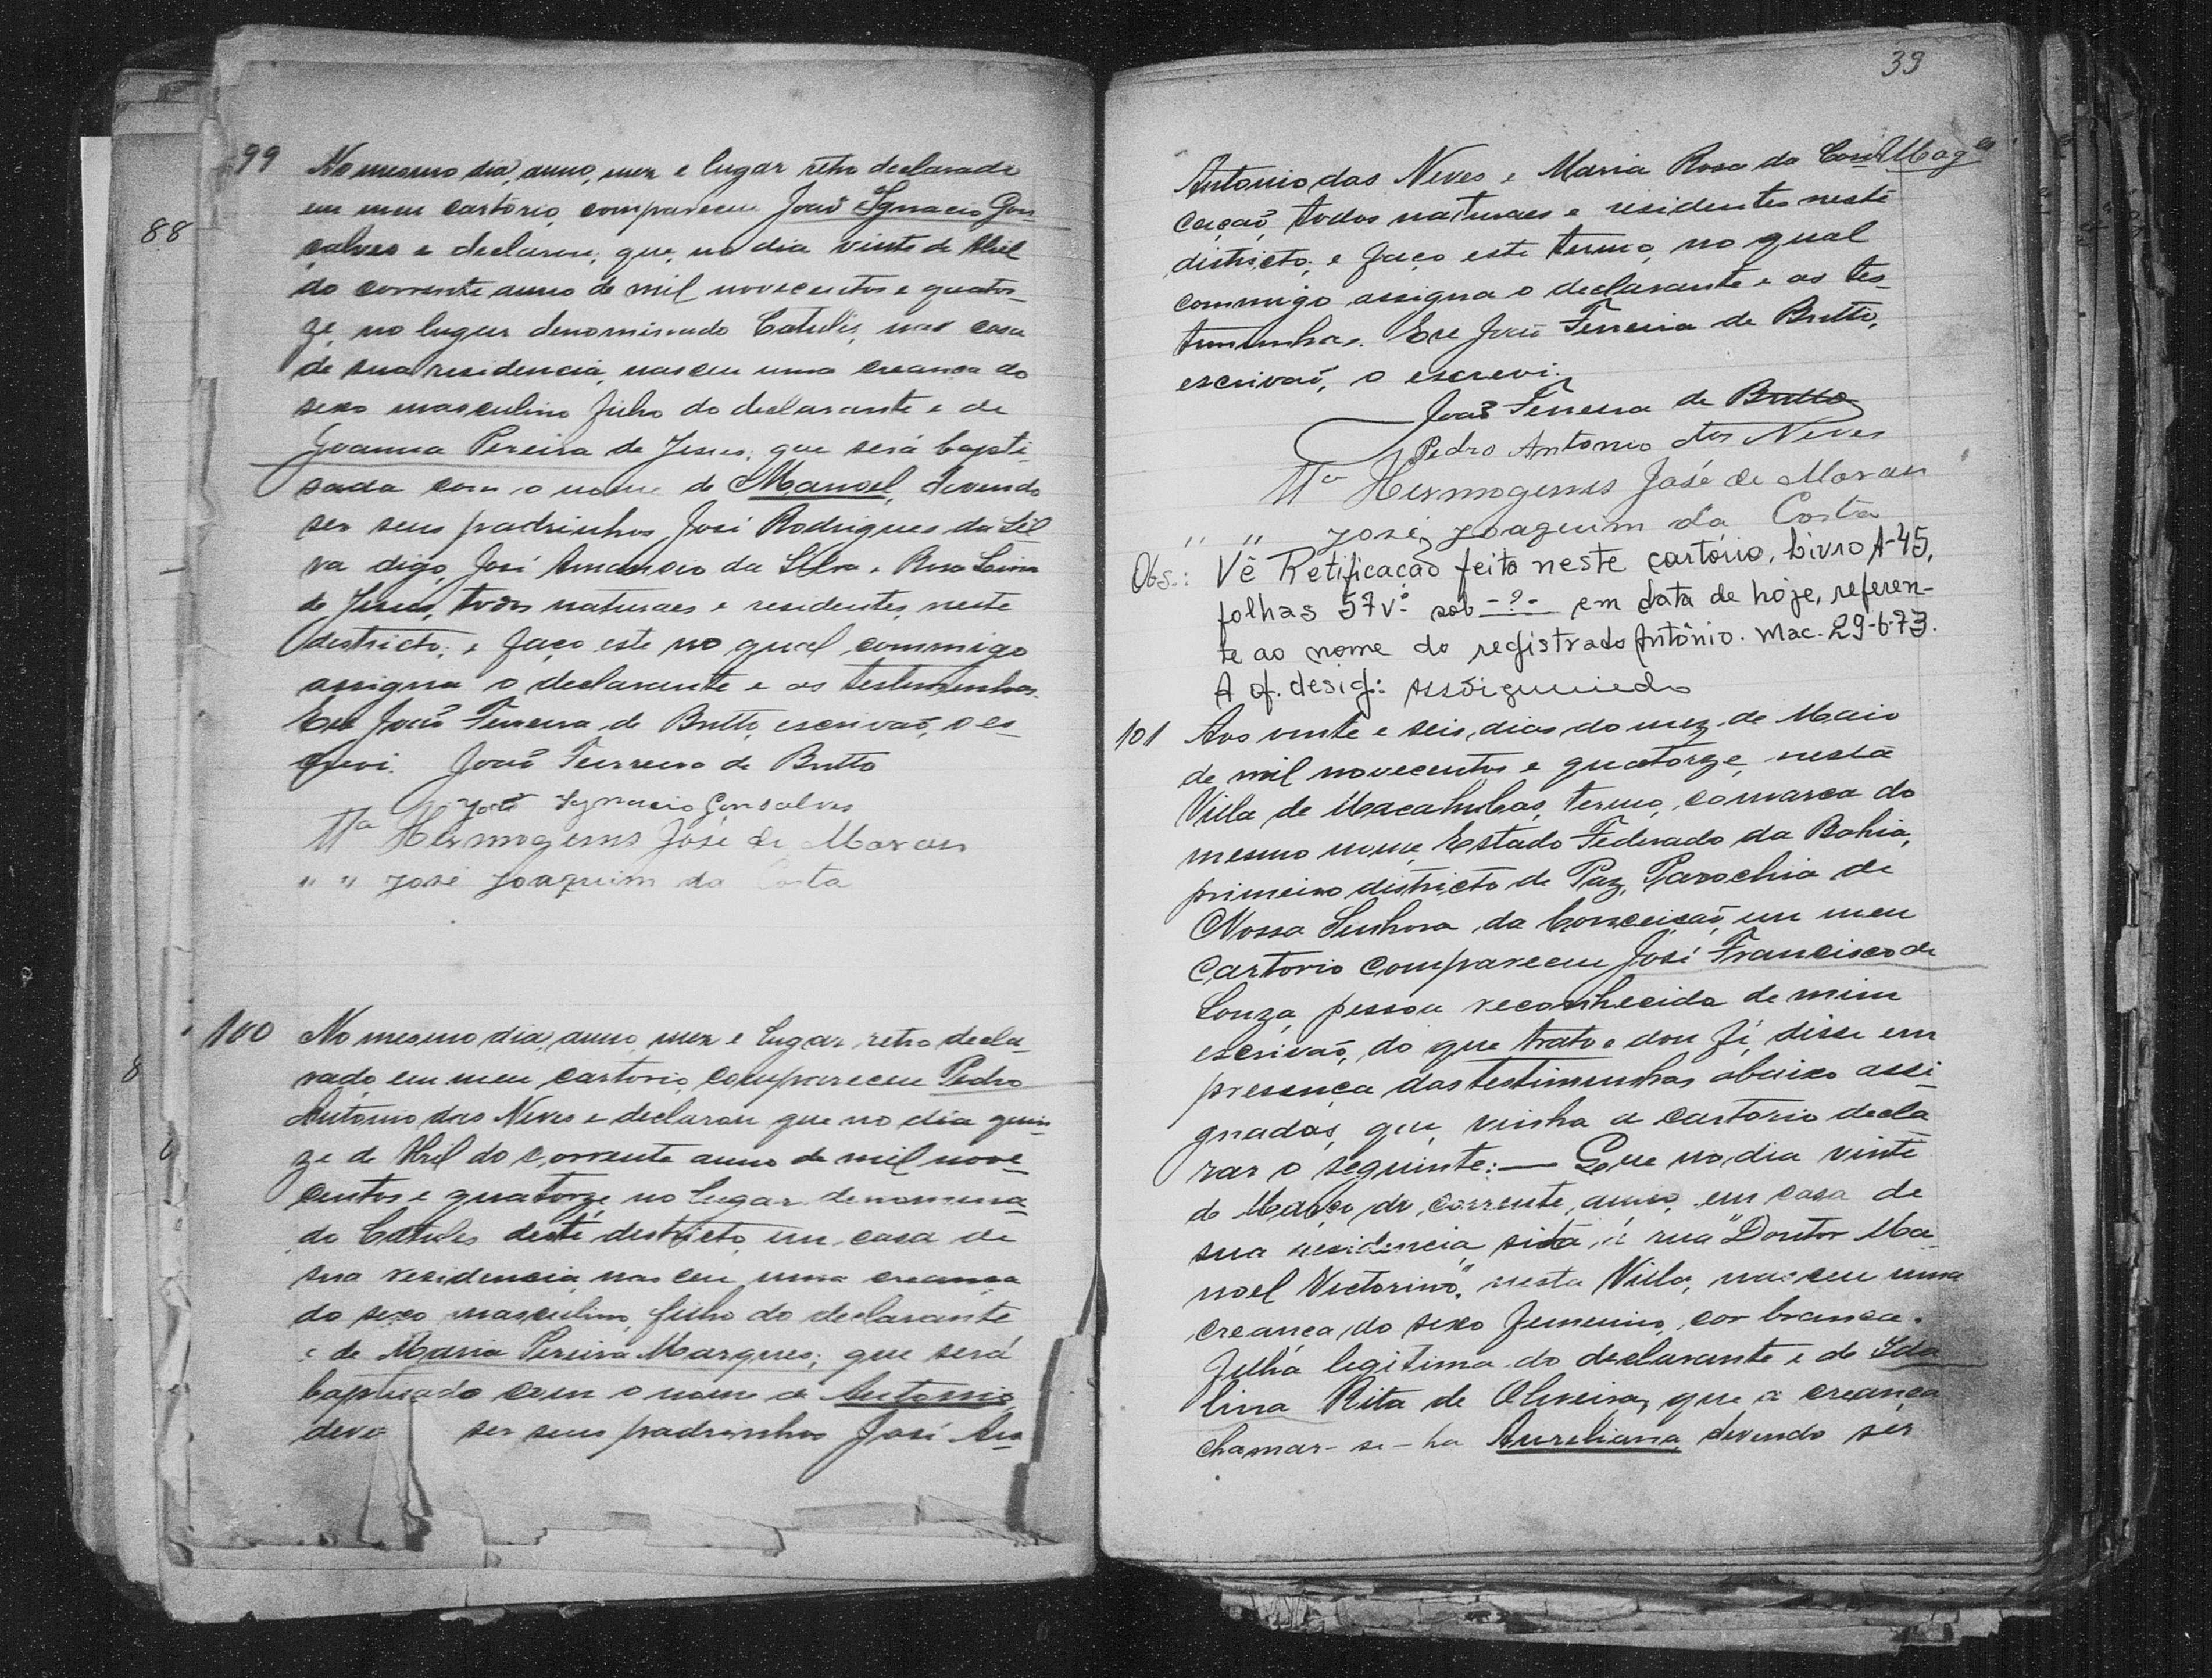 88
99 No mesmo dia, anno, mez e lugar retro declarado
em meu cartorio, compareceu João Ignacio Gon
çalves e declarou, que, no dia vinte de Abril
do corrente anno de mil novecentos e quator-
ze, no lugar denominado Catulés, na casa
de sua residencia, nasceu uma creança do
sexo masculino filho do declarante e de
Joanna Pereira de Jesus, que será bapti-
sada com o nome de Manoel, devendo
ser seus padrinhos José Rodrigues da Sil
va digo, José Amancio da Silva e Rosa
de Jesus, todos naturaes e residentes, neste
districto; e faço este no qual commigo
assigna o declarante e as testemunhas.
Eu João Ferreira de Britto, escrivaõ, o es-
crevi. João Ferreira de Britto
João Ignacio Gonsalves
Tta Hermogenes José de Moraes
" " José Joaquim da Costa
100 No mesmo dia, anno, mez e lugar retro decla-
rado em meu cartorio, compareceu Pedro
Antonio das Neves e declarou que no dia quin-
ze de Abril do corrente anno de mil nove-
centos e quatorze, no lugar denomina-
do Catulés deste districto, em casa de
sua residencia, nasceu uma creança
do sexo masculino, filho do declarante
e de Maria Pereira Marques; que será
baptisado com o nome de Antonio
deve ser seus padrinhos José
39
Antonio das Neves e Maria Rosa da Con
ceição, todos naturaes e residentes neste
districto; e faço este termo, no qual
commigo assigna o declarante e as tes-
temunhas. Eu João Ferreira de Britto,
escrivaõ, o escrevi.
João Ferreira de Britto
Pedro Antonio das Neves
Tta Hermogenes José de Moraes
" " José Joaquim da Costa
Obs.: Vê Retificação feita neste cartório, Livro A-45,
folhas 57vº sob -?- em data de hoje, referen-
te ao nome do registrado Antônio. Mac. 29-6-73.
A of. desig.:
101 Aos vinte e seis dias do mez de Maio
de mil novecentos e quatorze, nesta
Villa de Macahubas, termo, comarca do
mesmo nome, Estado Federado da Bahia,
primeiro districto de Paz, Parochia de
Nossa Senhora da Conceição, em meu
Cartorio compareceu José Francisco de
Souza, pessoa reconhecida de mim
escrivaõ, do que trato e dou fé, disse em
presença das testimunhas abaixo assi-
gnadas, que, vinha a cartorio decla
rar o seguinte: — Que no dia vinte
de Março do corrente anno, em casa de
sua residencia, sita á rua "Doutor Ma-
noel Victorino", nesta Villa, nasceu uma
creança do sexo femenino, cor branca.
Filha legitima do declarante e de Ida
lina Rita de Oliveira, que a creança
chamar-se-ha Aureliana devendo ser